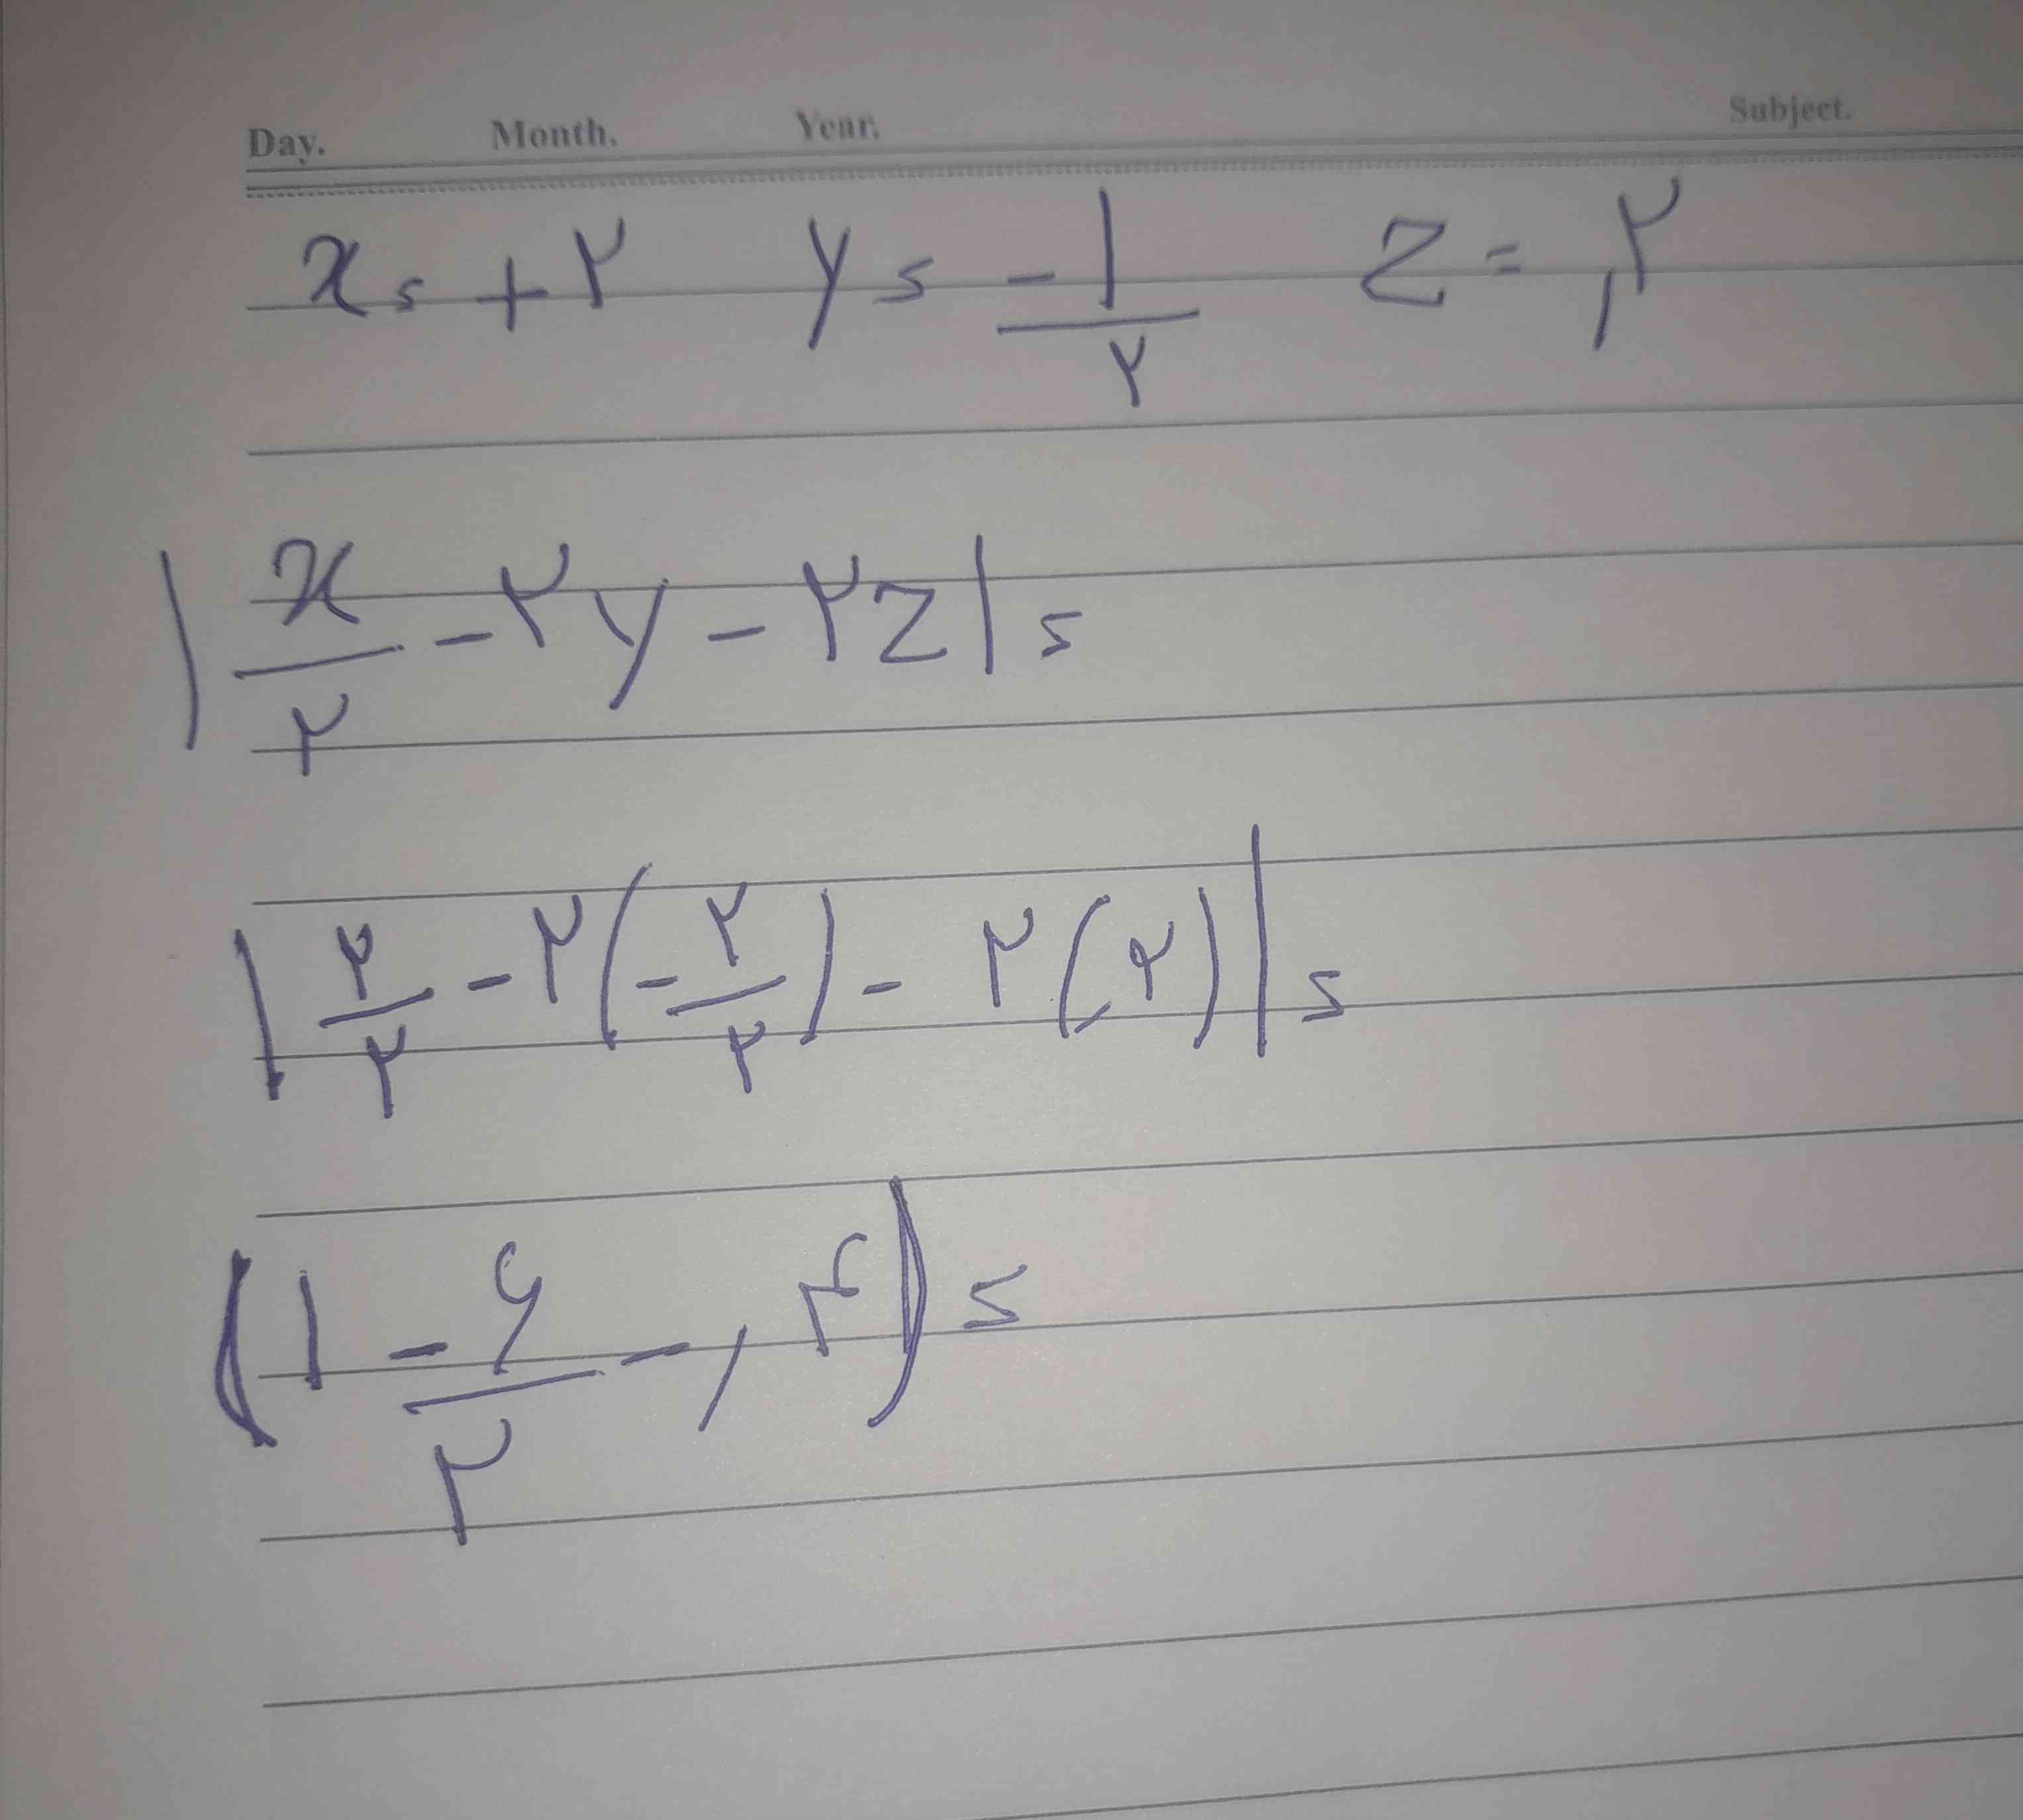 Day. Month. Year. Subject.
x = +۲ y = -۱/۲ z = ,۲
|x/۲ - ۲y - ۲z| =
|۲/۲ - ۲(-۲/۲) - ۲(,۲)| =
(۱ - ۶/۲ - ,۴) =